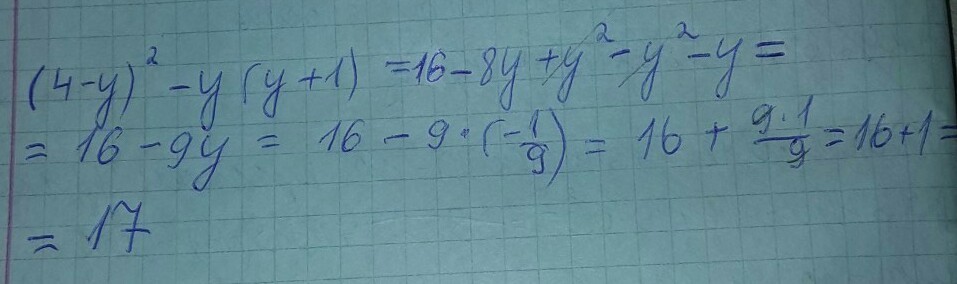 (4-y)² - y(y+1) = 16 - 8y + y² - y² - y =
= 16 - 9y = 16 - 9·(-1/9) = 16 + 9·1/9 = 16+1 =
= 17